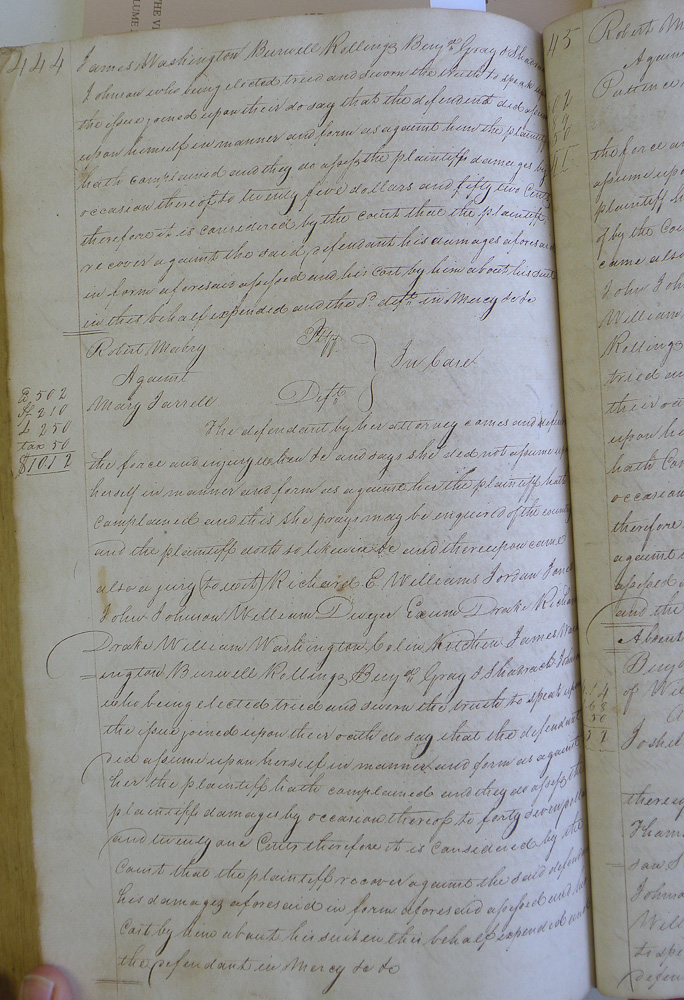 444
James Washington Burwell Rollings Benj.a Gray & Shadrach
Johnson who being elected tried and sworn the truth to speak upon
the issue joined upon their do say that the defendent did assume
upon himself in manner and form as against him the plaintiff
hath complained and they do assess the plaintiffs damages by
occasion thereof to twenty five dollars and fifty two Cents
therefore it is considered by the court that the plaintiff
recover against the said defendant his damages aforesaid
in form aforesaid assessed and his cost by him about his suit
in this behalf expended and the sd. deft. in Mercy &c
Robert Mabry Pltff.
Against In Case
Mary Farrell Deft.
502
210
250
tax 50
$1012
The defendant by her attorney comes and defends
the force and injury when &c and says she did not assume upon
herself in manner and form as against her the plaintiff hath
complained and this she prays may be enquired of the country
and the plaintiff doth so likewise &c and thereupon came
also a jury (to wit) Richard E Williams Jordan Jones
John Johnson William Dwyer Exum Drake Richard
Drake William Washington Colin Kitchen James Wash
=ington Burwell Rollings Benj.a Gray & Shadrach Johnson
who being elected tried and sworn the truth to speak upon
the issue joined upon their oath do say that the defendant
did assume upon herself in manner and form as against
her the plaintiff hath complained and they do assess the
plaintiffs damages by occasion thereof to forty seven
and twenty one Cents therefore it is considered by the
Court that the plaintiff recover against the said defendant
his damages aforesaid in form aforesaid assessed and his
cost by him about his suit in this behalf expended and
the defendant in Mercy &c &c
45
Robert M
Against
the force an
assume upo
plaintiff h
of by the Cou
came also
John Joh
William
Rollings
tried an
their oa
upon he
hath Com
occasion
therefore
against
assessed
and the
of Wil
therea
Johnso
Will
to spe
defen